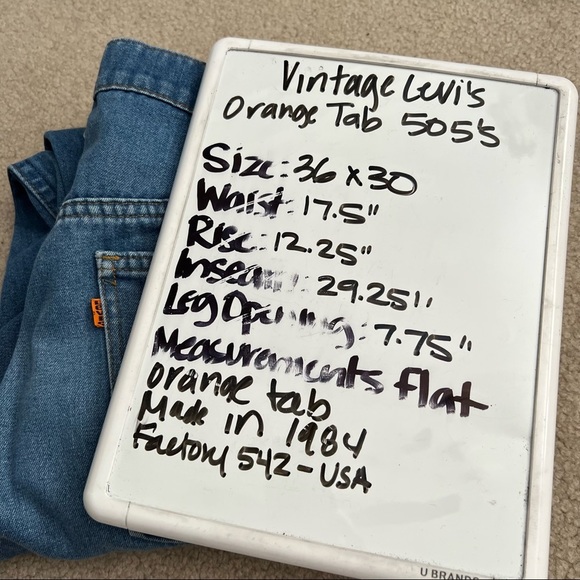 Vintage Levi's
Orange Tab 505's
Size: 36 x 30
Waist: 17.5"
Rise: 12.25"
Inseam: 29.25"
Leg Opening: 7.75"
Measurements flat
orange tab
Made in 1984
Factory 542 - USA
U BRANDS